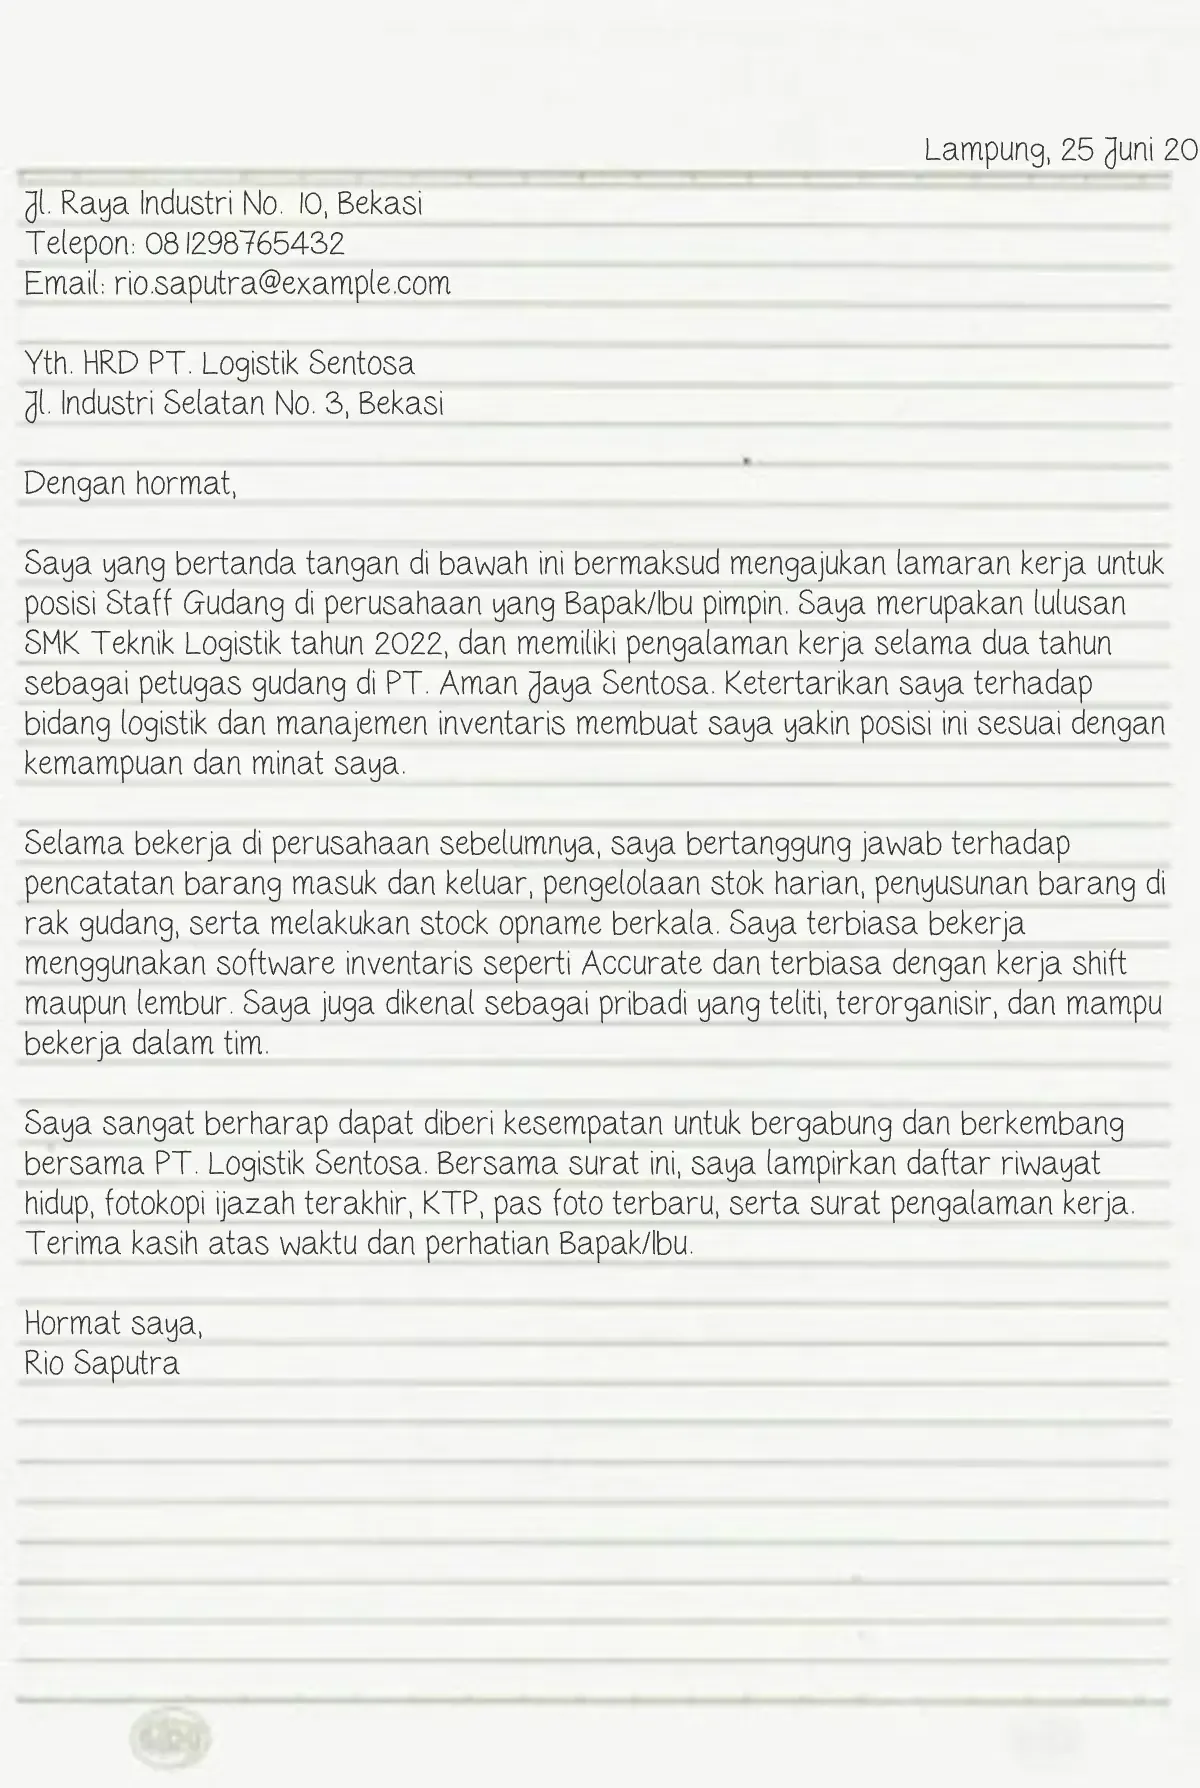 Lampung, 25 Juni 20
Jl. Raya Industri No. 10, Bekasi
Telepon: 081298765432
Email: rio.saputra@example.com
Yth. HRD PT. Logistik Sentosa
Jl. Industri Selatan No. 3, Bekasi
Dengan hormat,
Saya yang bertanda tangan di bawah ini bermaksud mengajukan lamaran kerja untuk
posisi Staff Gudang di perusahaan yang Bapak/Ibu pimpin. Saya merupakan lulusan
SMK Teknik Logistik tahun 2022, dan memiliki pengalaman kerja selama dua tahun
sebagai petugas gudang di PT. Aman Jaya Sentosa. Ketertarikan saya terhadap
bidang logistik dan manajemen inventaris membuat saya yakin posisi ini sesuai dengan
kemampuan dan minat saya.
Selama bekerja di perusahaan sebelumnya, saya bertanggung jawab terhadap
pencatatan barang masuk dan keluar, pengelolaan stok harian, penyusunan barang di
rak gudang, serta melakukan stock opname berkala. Saya terbiasa bekerja
menggunakan software inventaris seperti Accurate dan terbiasa dengan kerja shift
maupun lembur. Saya juga dikenal sebagai pribadi yang teliti, terorganisir, dan mampu
bekerja dalam tim.
Saya sangat berharap dapat diberi kesempatan untuk bergabung dan berkembang
bersama PT. Logistik Sentosa. Bersama surat ini, saya lampirkan daftar riwayat
hidup, fotokopi ijazah terakhir, KTP, pas foto terbaru, serta surat pengalaman kerja.
Terima kasih atas waktu dan perhatian Bapak/Ibu.
Hormat saya,
Rio Saputra